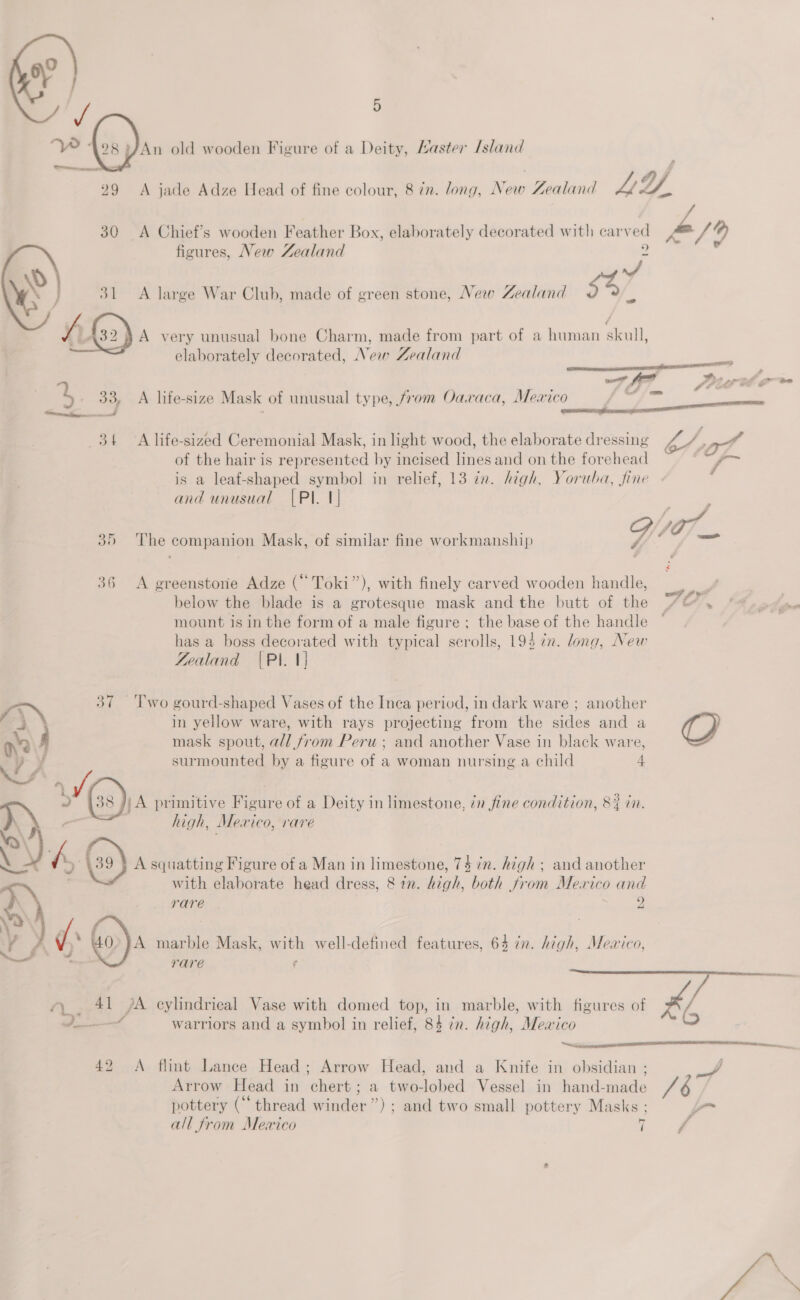 5
28 An old wooden Figure of a Deity, Easter Island
29 A jade Adze Head of fine colour, 8 in. long, New Zealand
30 A Chief's wooden Feather Box, elaborately decorated with carved
figures, New Zealand 2
31 A large War Club, made of green stone, New Zealand
32 A very unusual bone Charm, made from part of a human skull,
elaborately decorated, New Zealand
33, A life-size Mask of unusual type, from Oaxaca, Mexico
34 A life-sized Ceremonial Mask, in light wood, the elaborate dressing
of the hair is represented by incised lines and on the forehead
is a leaf-shaped symbol in relief, 13 in. high, Yoruba, fine
and unusual [Pl. I]
35 The companion Mask, of similar fine workmanship
36 A greenstone Adze (“Toki”), with finely carved wooden handle,
below the blade is a grotesque mask and the butt of the
mount is in the form of a male figure ; the base of the handle
has a boss decorated with typical scrolls, 19½ in. long, New
Zealand [Pl. I]
37 Two gourd-shaped Vases of the Inca period, in dark ware ; another
in yellow ware, with rays projecting from the sides and a
mask spout, all from Peru ; and another Vase in black ware,
surmounted by a figure of a woman nursing a child 4
38 A primitive Figure of a Deity in limestone, in fine condition, 8¾ in.
high, Mexico, rare
39 A squatting Figure of a Man in limestone, 7½ in. high ; and another
with elaborate head dress, 8 in. high, both from Mexico and
rare 2
40 A marble Mask, with well-defined features, 6½ in. high, Mexico,
rare
41 A cylindrical Vase with domed top, in marble, with figures of
warriors and a symbol in relief, 8½ in. high, Mexico
42 A flint Lance Head ; Arrow Head, and a Knife in obsidian ;
Arrow Head in chert ; a two-lobed Vessel in hand-made
pottery (“thread winder”) ; and two small pottery Masks ;
all from Mexico 7